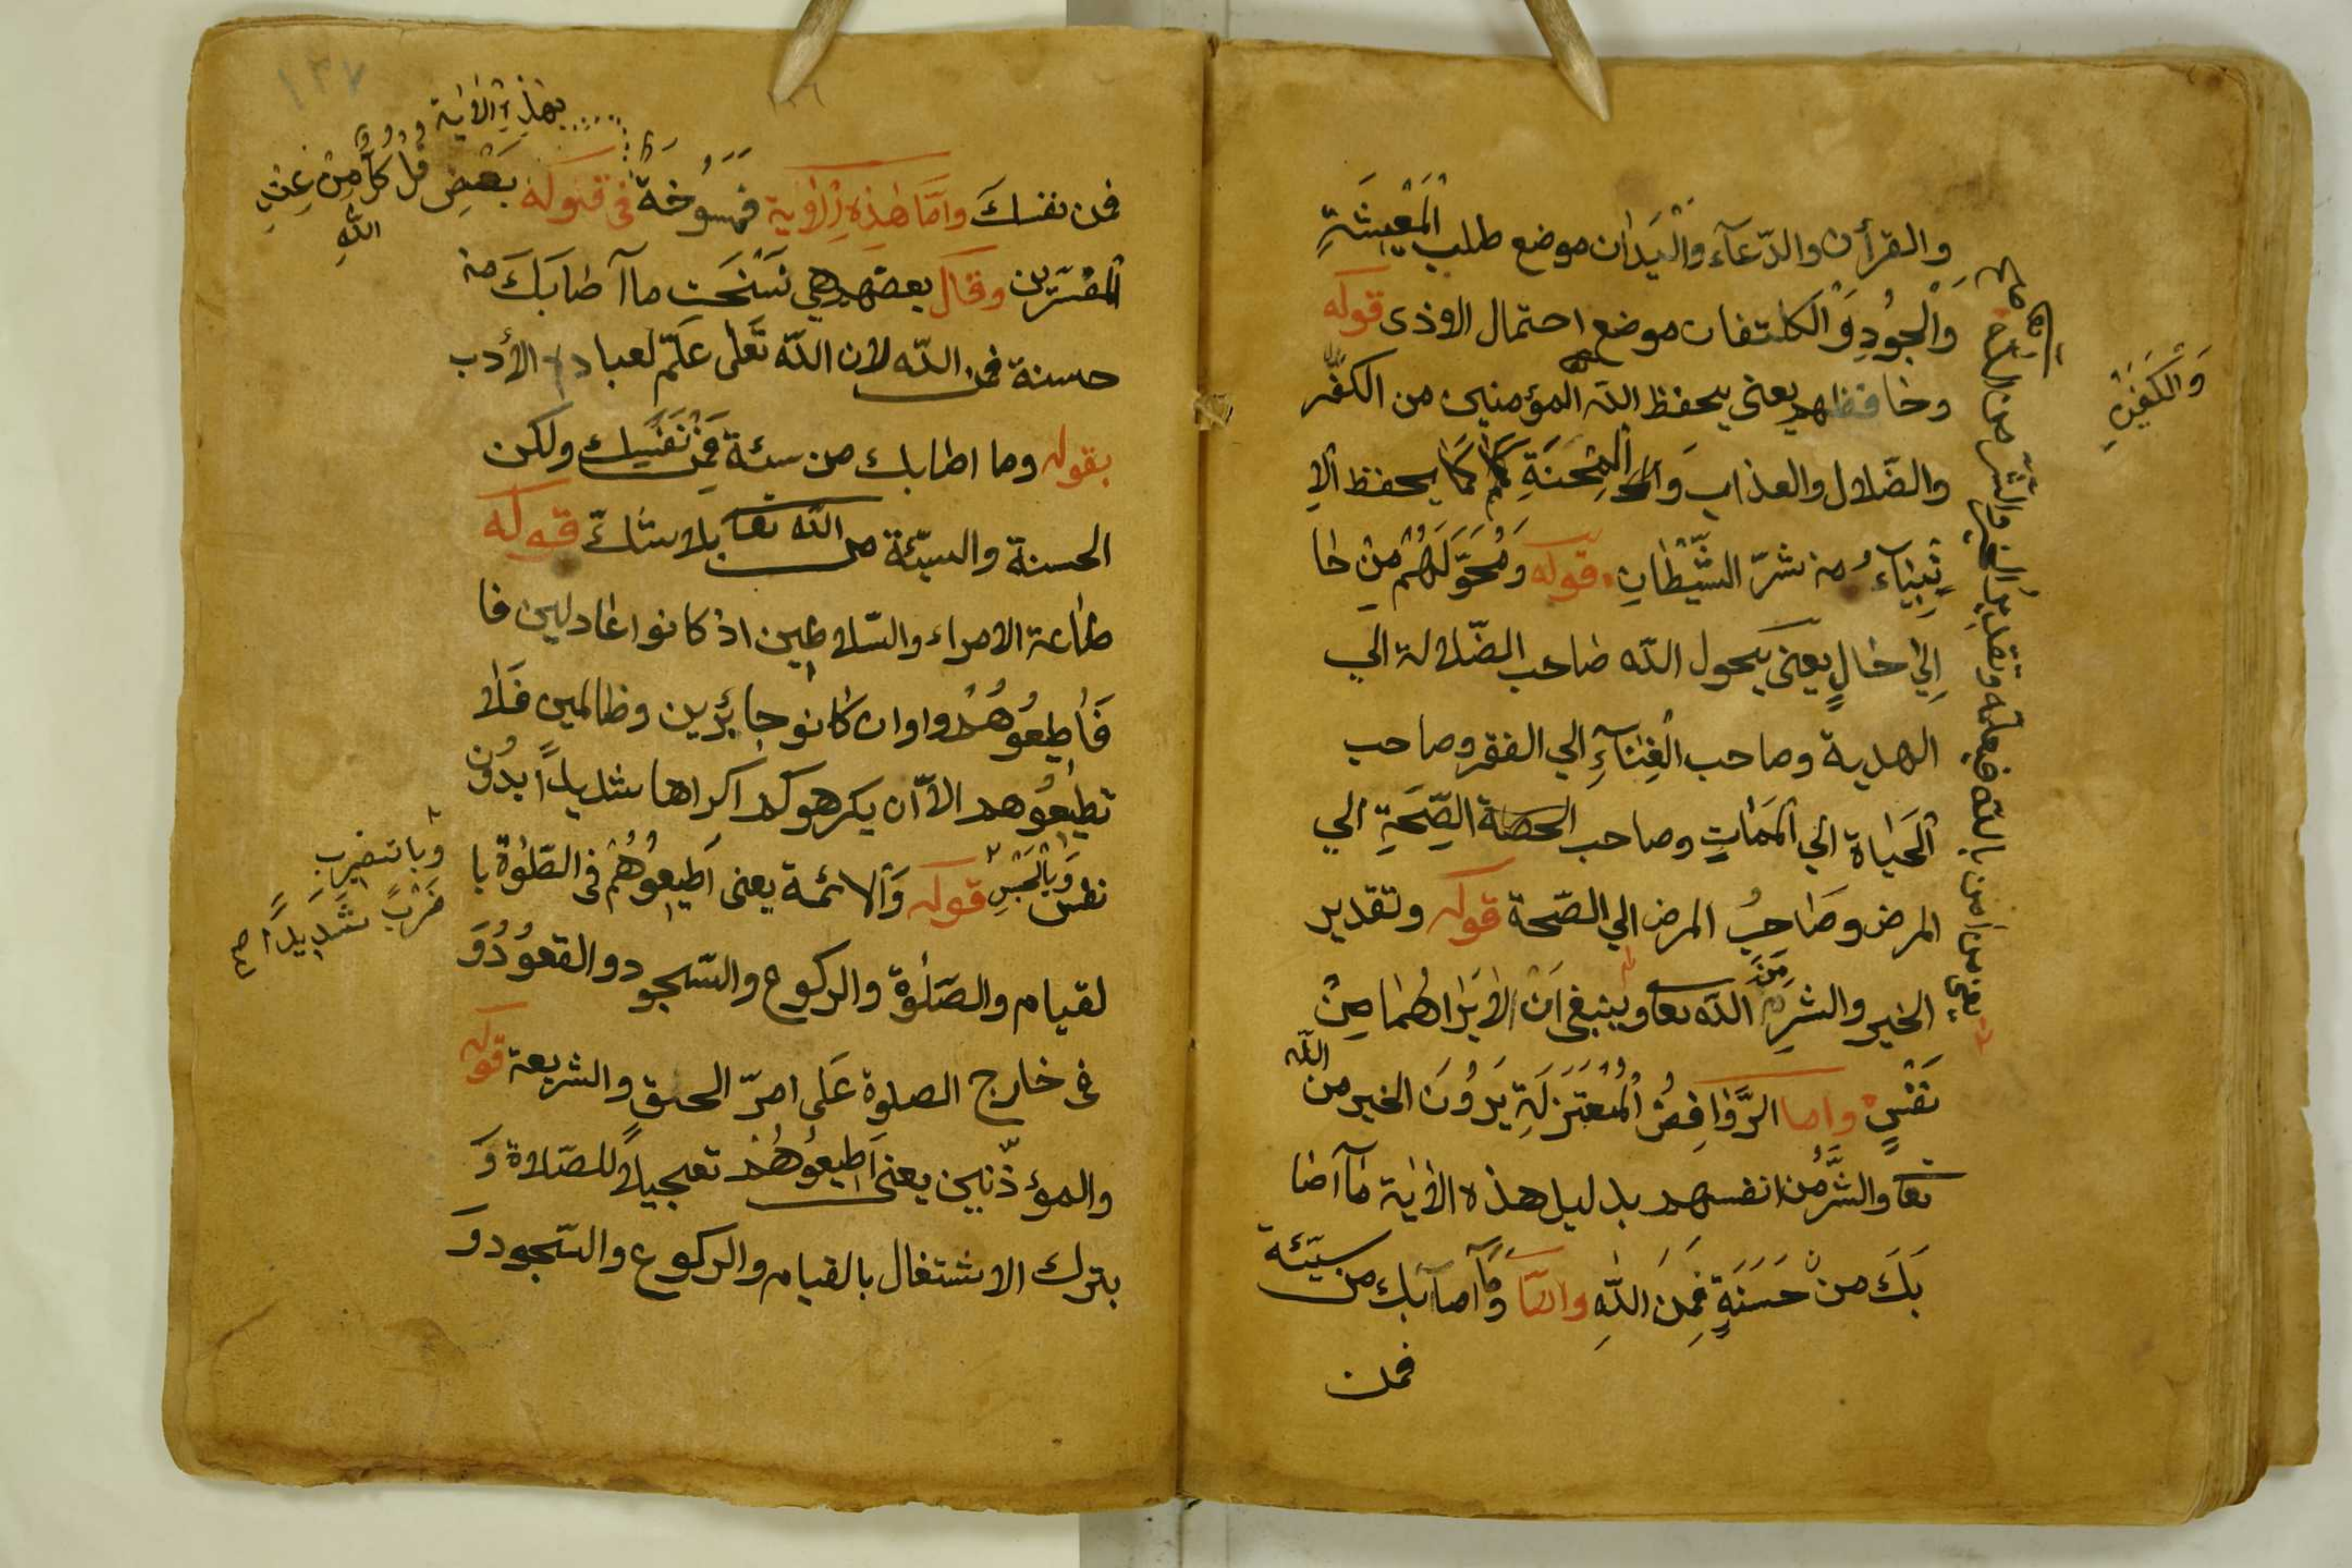 والقرأن والدّعآء والْيَدَان موضع طلب الْمَعِيشَةِ
وَالْجُودِ وَالْكلتفان موضع احتمال الاذى قوله
وحافظهم يعني يحفظ الله المؤمنين من الكفر
والضّلال والعذاب وَالْمِحْنَةِ كَمَا يحفظ الا
نْبِيَاءُ من شرّ الشَّيْطَانِ قوله وَمُحَوِّلَهُمْ مِنْ حَا
اِلَى حَالٍ يعنى يحول الله صاحب الضّلالة الي
الهدية وصاحب الْغِنَآءِ الي الفقر وصاحب
الْحَيَاة الي الْمَمَاتِ وصاحب الصِّحَّةِ الي
المرض وصَاحِبُ المرض الي الصّحة قوله وتقدير
الخير والشرِ مِنَ الله تعا وينبغى اَنْ لاَيَرَاهُمَا مِنْ
نَفْسٍ واما الرَّوَافِضُ الْمُعْتَزِلَةِ يَرَوْنَ الخير من الله
تعا والشَّرُّ من انفسهم بدليل هذه الاٰية مَآ اَصَا
بَكَ من حَسَنَةٍ فَمِنَ اللهِ وامّا وَمَآ اصآبك من سيّئة
فمن
وَالْكَفَيْنِ
يعني من اٰمن بالله فيعلمه وتقدير الخير والشّر من الله
فمن نفسك وَاَمَّا هٰذِهِ الْاٰية فَمَنْسُوخَةٌ فى قوله بَعْضِ
بهٰذِهِ الْاٰيَة قُلْ كُلٌّ مِنْ عِنْدِ
اللهِ
الْمفسّرين وقال بعضهم هي نَسَخَتِ مآ اَصَابَكَ من
حسنة فمن الله لان الله تَعَلى عَلَّمَ لعباده الأدب
بقوله وما اصابك من سيئة فَمِنْ نَفْسِكَ ولكن
الحسنة والسيّئة من الله تعا بلا شكّ قوله
طاعة الامراء والسّلاطين اذ كانوا عادلين فا
فَأَطِيعُوهُمْ واوان كانو جابِرين وظالمين فَلاَ
تطيعُوهم الاّ ان يكرهوكم اكراها شديداً بدُون
نفس وَبِالْحَبْسِ قوله وَالائمة يعنى اَطِيعُوهُمْ فى الصّلٰوة با
وبالضربِ
ضَرْبً شَدِيداً صح
لقيام والصّلٰوة والركوع والسّجود والقعُوُدُ وَ
فى خارج الصلوة عَلي امرّ الحق والشريعة قوله
والمؤذّنين يعنى اَطِيعُوهُمْ تعجيلاً للصّلاة وَ
بترك الاشتغال بالقيام والركوع والسّجود وَ
١٣٧